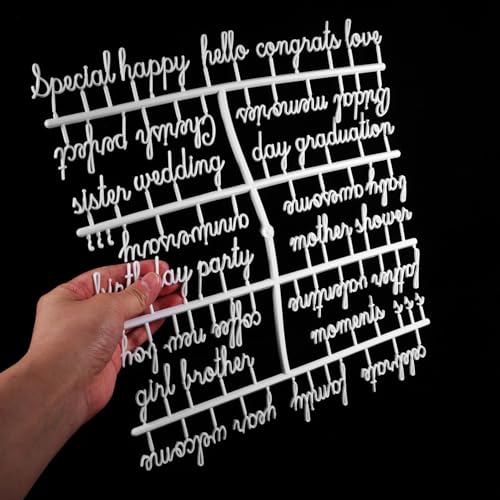 Special happy hello congrats love
Bridal memories Cherish perfect
sister wedding day graduation
baby awesome anniversary
birthday party mother shower
father valentine coffee new boy
girl brother moments
celebrate family year welcome